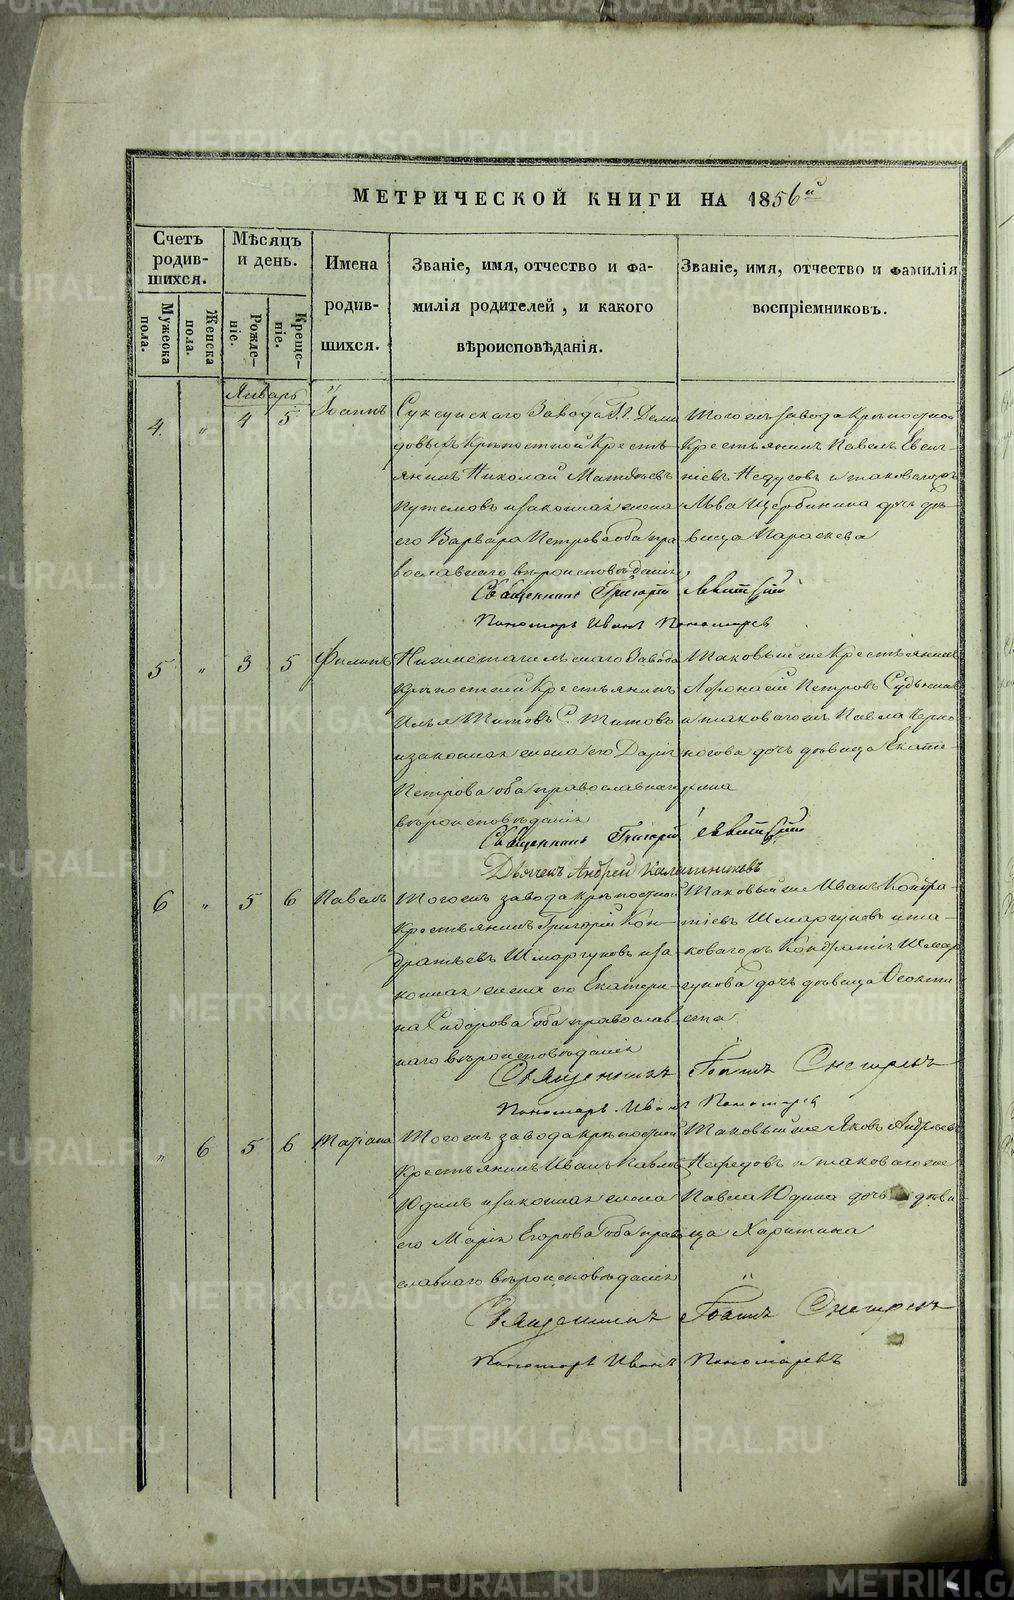 МЕТРИЧЕСКОЙ КНИГИ НА 1856й
Счетъ родив-шихся.
Мужеска пола.
Женска пола.
Мѣсяцъ и день.
Рожде-ніе.
Креще-ніе.
Имена родив-шихся.
Званіе, имя, отчество и фа-
милія родителей, и какого
вѣроисповѣданія.
Званіе, имя, отчество и фамилія
воспріемниковъ.
Январь
4. " 4 5 Іоаннъ
Суксунскаго Завода Г.г. Деми
довыхъ крѣпостной Кресть
янинъ Николай Матвѣевъ
и законная жена
его Варвара Петрова оба пра
вославнаго вѣроисповѣданія
Тогожъ завода крѣпостной
Крестьянинъ Павелъ
Недуговъ и таковагожъ
Льва Щербинина дочь дѣ
вица Параскева
Священникъ Григорій Левитскій
Пономарь Иванъ Пономаревъ
5 " 3 5 Филипъ
Нижнетагильскаго Завода
крѣпостной Крестьянинъ
Илья Титовъ Титовъ
и законная жена его Дарія
Петрова оба православнаго
вѣроисповѣданія
Таковый же Крестьянинъ
Афонасій Петровъ
и таковагожъ Павла Черно
носова дочь дѣвица Екате-
рина
Священникъ Григорій Левитскій
Дьячекъ Андрей Калашниковъ
6 " 5 6 Павелъ
Тогожъ завода крѣпостной
Крестьянинъ Григорій Кон-
дратьевъ Шмаргуновъ и за
конная жена его Екатери-
на Сидорова оба православ
наго вѣроисповѣданія
Таковый же Иванъ Кондра-
тіевъ Шмаргуновъ и та-
коваго жъ Кондратія Шмар
гунова дочь дѣвица Феокти
ста
Священникъ Іоаннъ
Пономарь Иванъ Пономаревъ
" 6 5 6 Татіана
Тогожъ завода крѣпостной
Крестьянинъ Иванъ Павловъ
Юдинъ и законная жена
его Марія Егорова оба право
славнаго вѣроисповѣданія
Таковый же Яковъ Андреевъ
Нефедовъ и таковаго же
Павла Юдина дочь дѣви-
ца Харитина
Священникъ Іоаннъ
Пономарь Иванъ Пономаревъ
METRIKI.GASO-URAL.RU